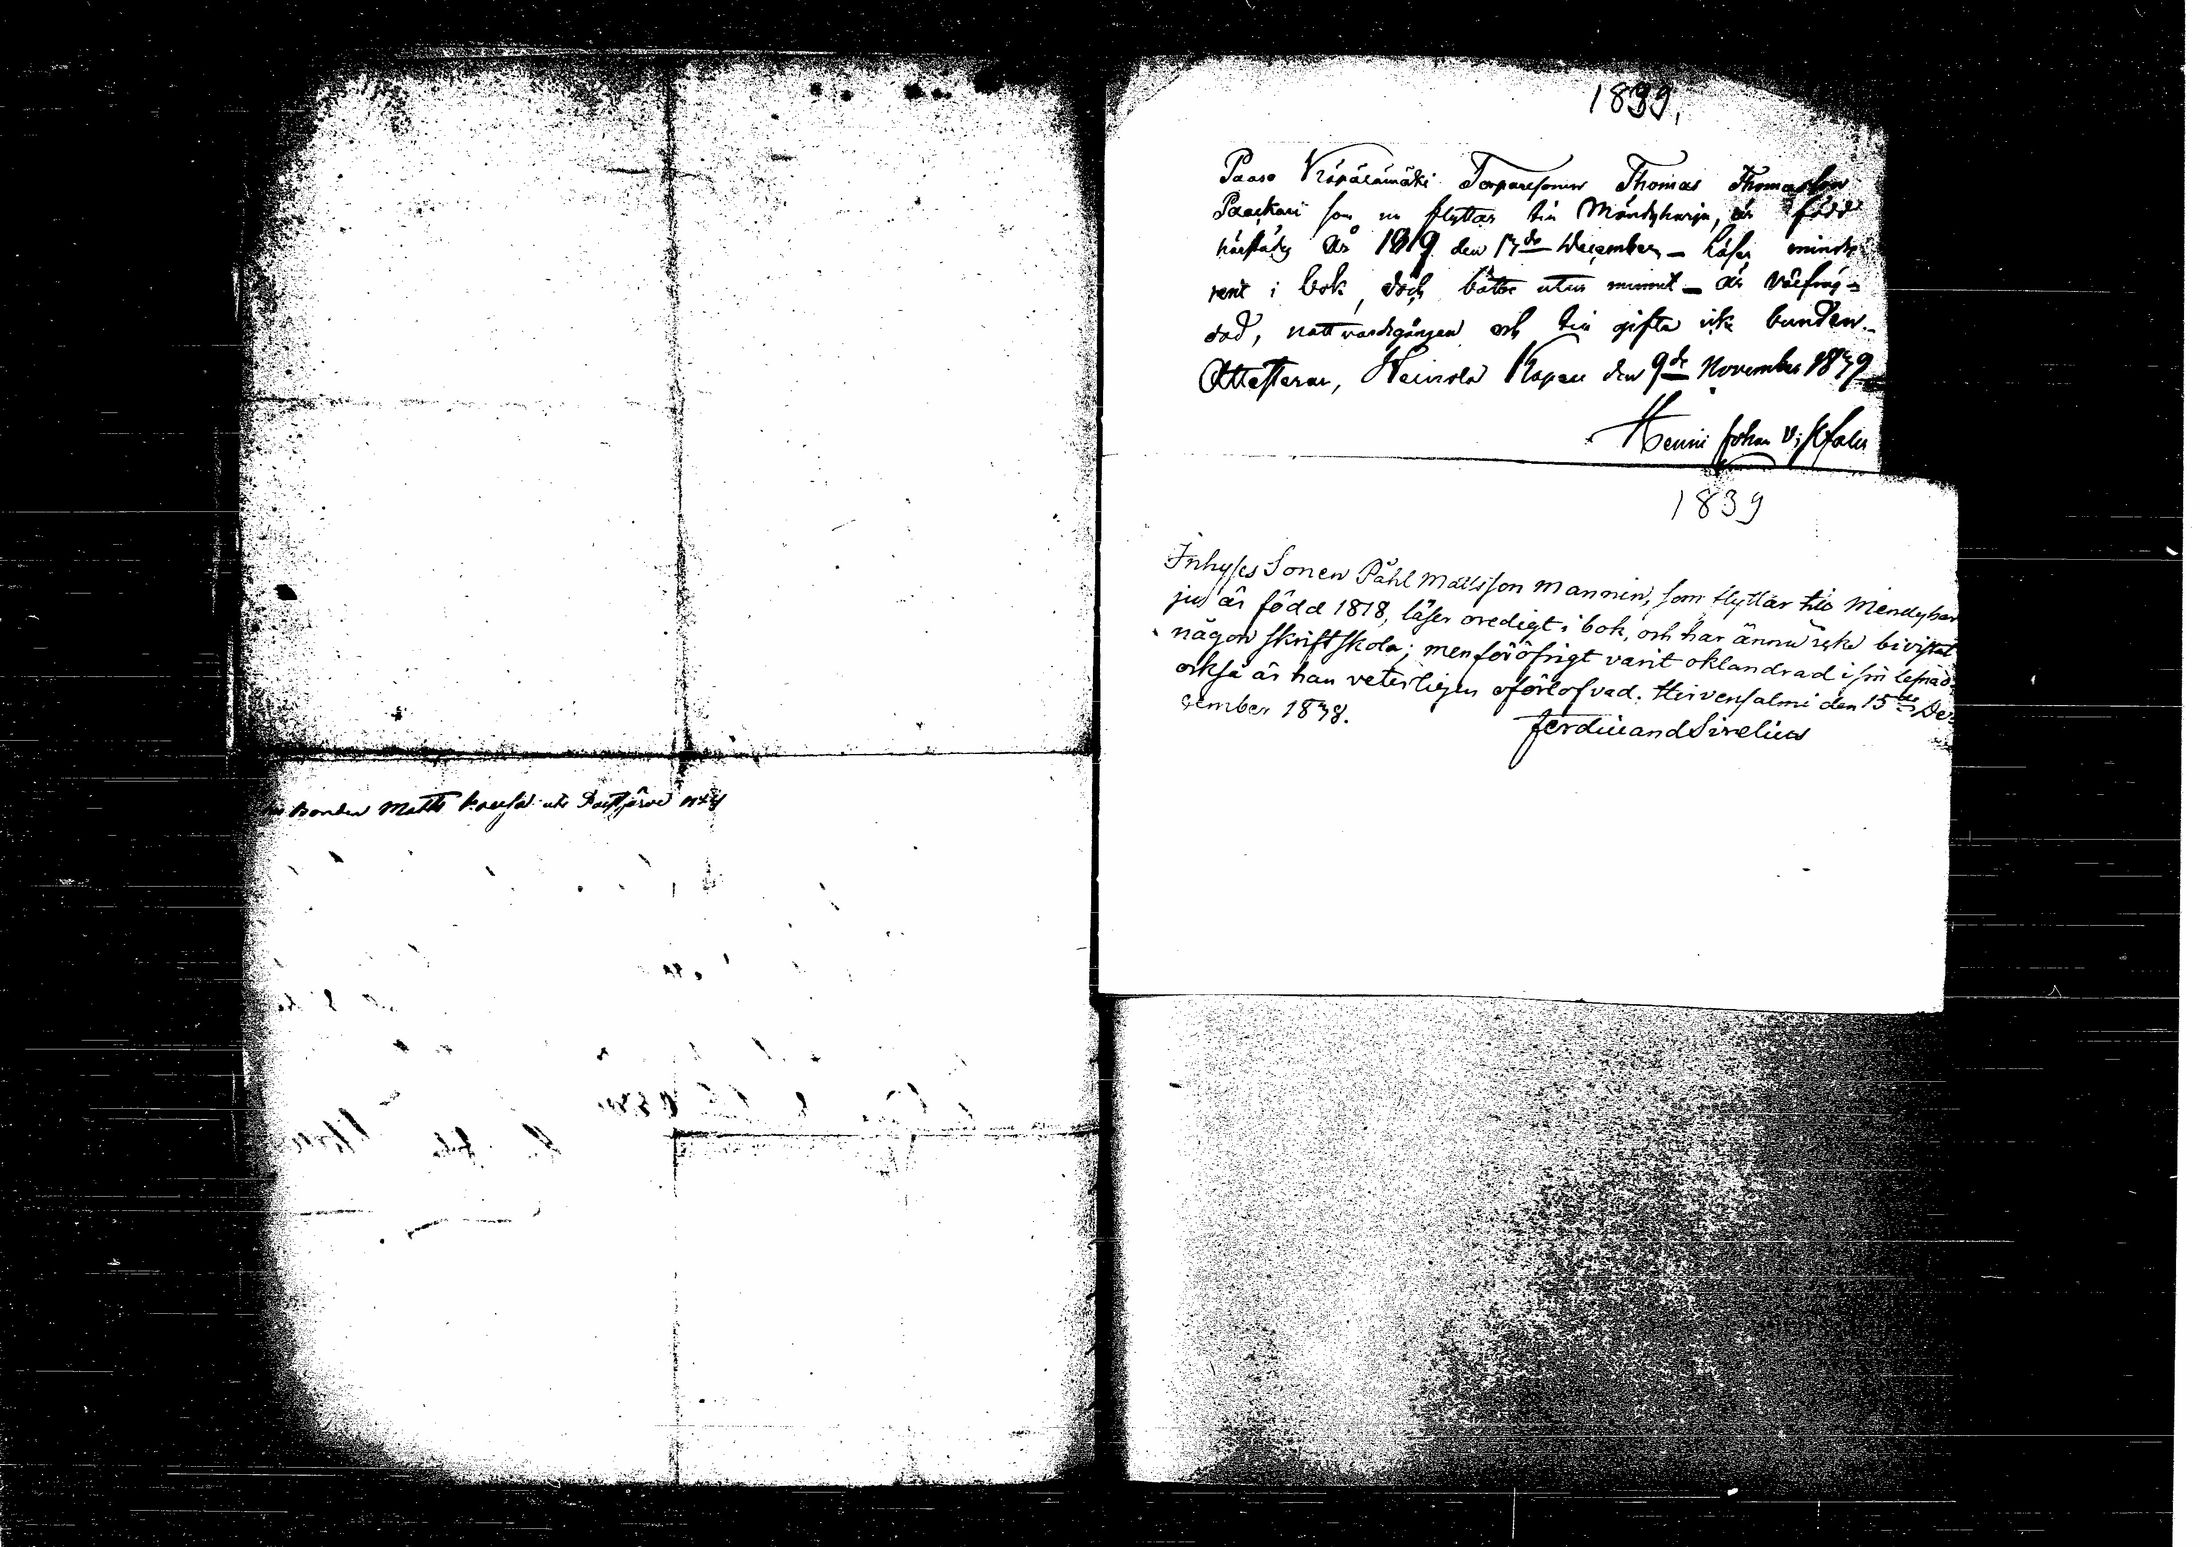 Bonden Matts
1839,
Paaso Torparesonen Thomas Thomasson
Paackari som nu flyttar till Mändyharju, är född
härstädes År 1819 den 17de December – läser mindre
rent i bok, dock bättre utur minnet – är välfräg-
dad, nattvardsgången och till gifta icke bunden.
Attesterar, Heinola Kapell den 9de November 1839
Johan
1839
Inhyses Sonen Påhl Mattsson Mannin, som flyttar till Mendyhar
ju är född 1818, läser oredigt i bok, och har ännu icke bivistat
någon skriftskola; men föröfrigt varit oklandrad i sin lefnad;
också är han veterligen oförlofvad. Hirvensalmi den 15de De=
cember 1838.
Ferdinand Sirelius